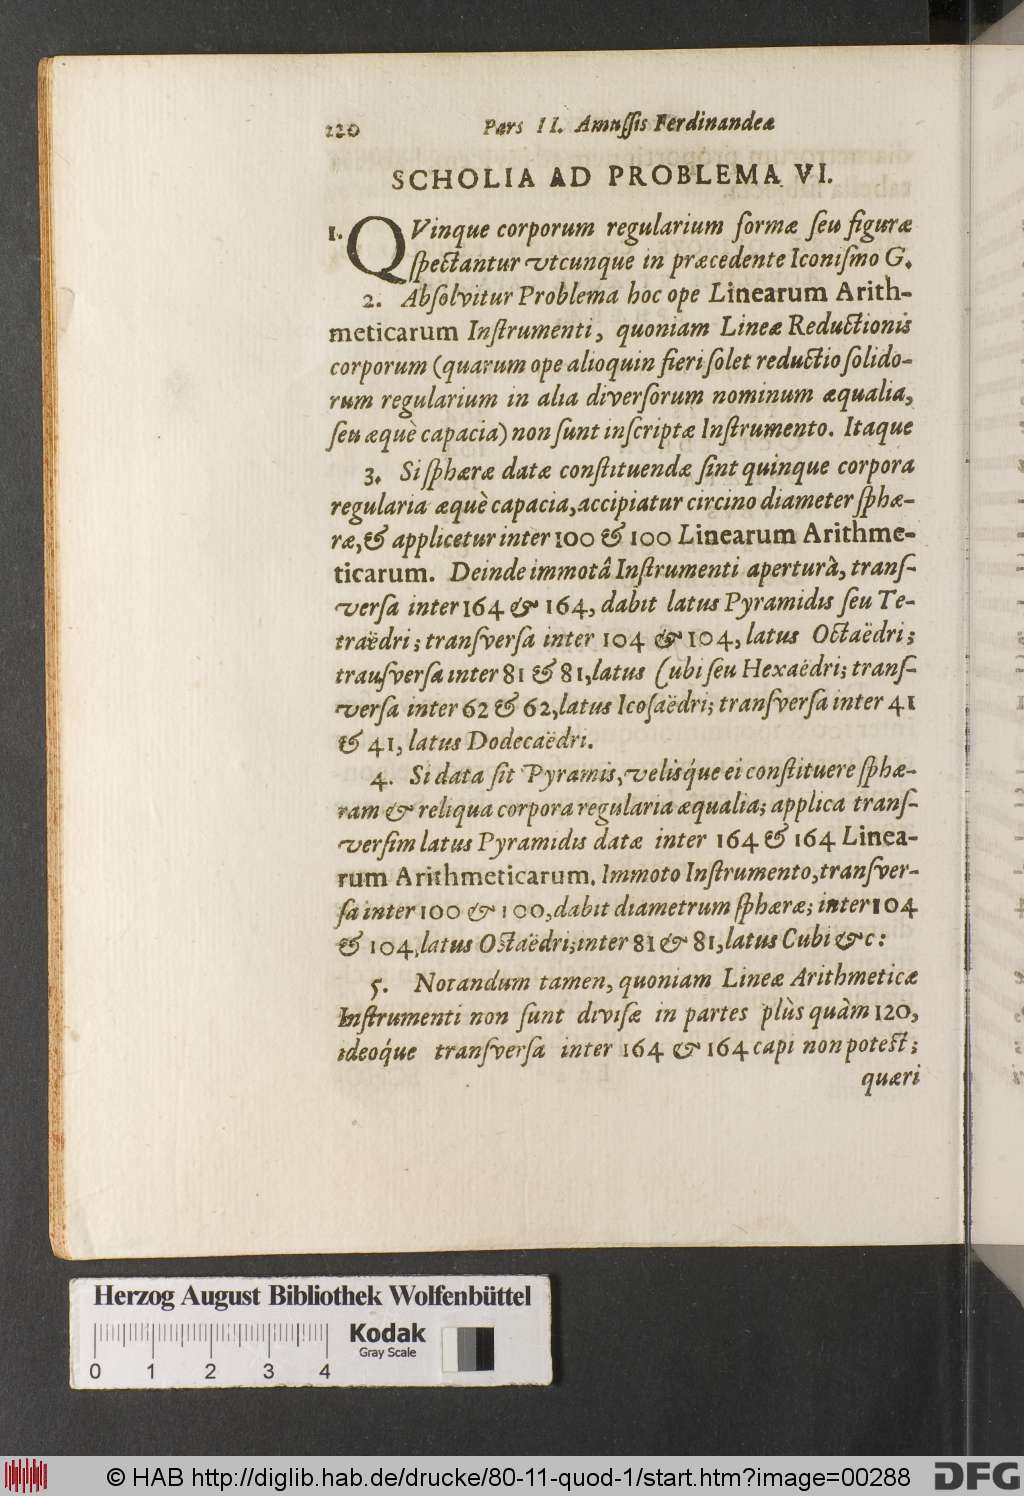 220 Pars II. Amussis Ferdinandeæ
SCHOLIA AD PROBLEMA VI.
1. QVinque corporum regularium formæ seu figuræ
spectantur vtcunque in præcedente Iconismo G.
2. Absolvitur Problema hoc ope Linearum Arith-
meticarum Instrumenti, quoniam Lineæ Reductionis
corporum (quarum ope alioquin fieri solet reductio solido-
rum regularium in alia diversorum nominum æqualia,
seu æquè capacia) non sunt inscriptæ Instrumento. Itaque
3. Si sphæræ datæ constituendæ sint quinque corpora
regularia æquè capacia, accipiatur circino diameter sphæ-
ræ, & applicetur inter 100 & 100 Linearum Arithme-
ticarum. Deinde immotâ Instrumenti aperturà, trans-
versa inter 164 & 164, dabit latus Pyramidis seu Te-
traëdri; transversa inter 104 & 104, latus Octaëdri;
transversa inter 81 & 81, latus Cubi seu Hexaëdri; trans-
versa inter 62 & 62, latus Icosaëdri; transversa inter 41
& 41, latus Dodecaëdri.
4. Si data sit Pyramis, velisq́ue ei constituere sphæ-
ram & reliqua corpora regularia æqualia; applica trans-
versim latus Pyramidis datæ inter 164 & 164 Linea-
rum Arithmeticarum. Immoto Instrumento, transver-
sa inter 100 & 100, dabit diametrum sphæræ; inter 104
& 104, latus Octaëdri; inter 81 & 81, latus Cubi &c:
5. Notandum tamen, quoniam Lineæ Arithmeticæ
Instrumenti non sunt divisæ in partes plùs quàm 120,
ideoq́ue transversa inter 164 & 164 capi non potest;
quæri
Herzog August Bibliothek Wolfenbüttel
0 1 2 3 4
Kodak
Gray Scale
© HAB http://diglib.hab.de/drucke/80-11-quod-1/start.htm?image=00288
DFG